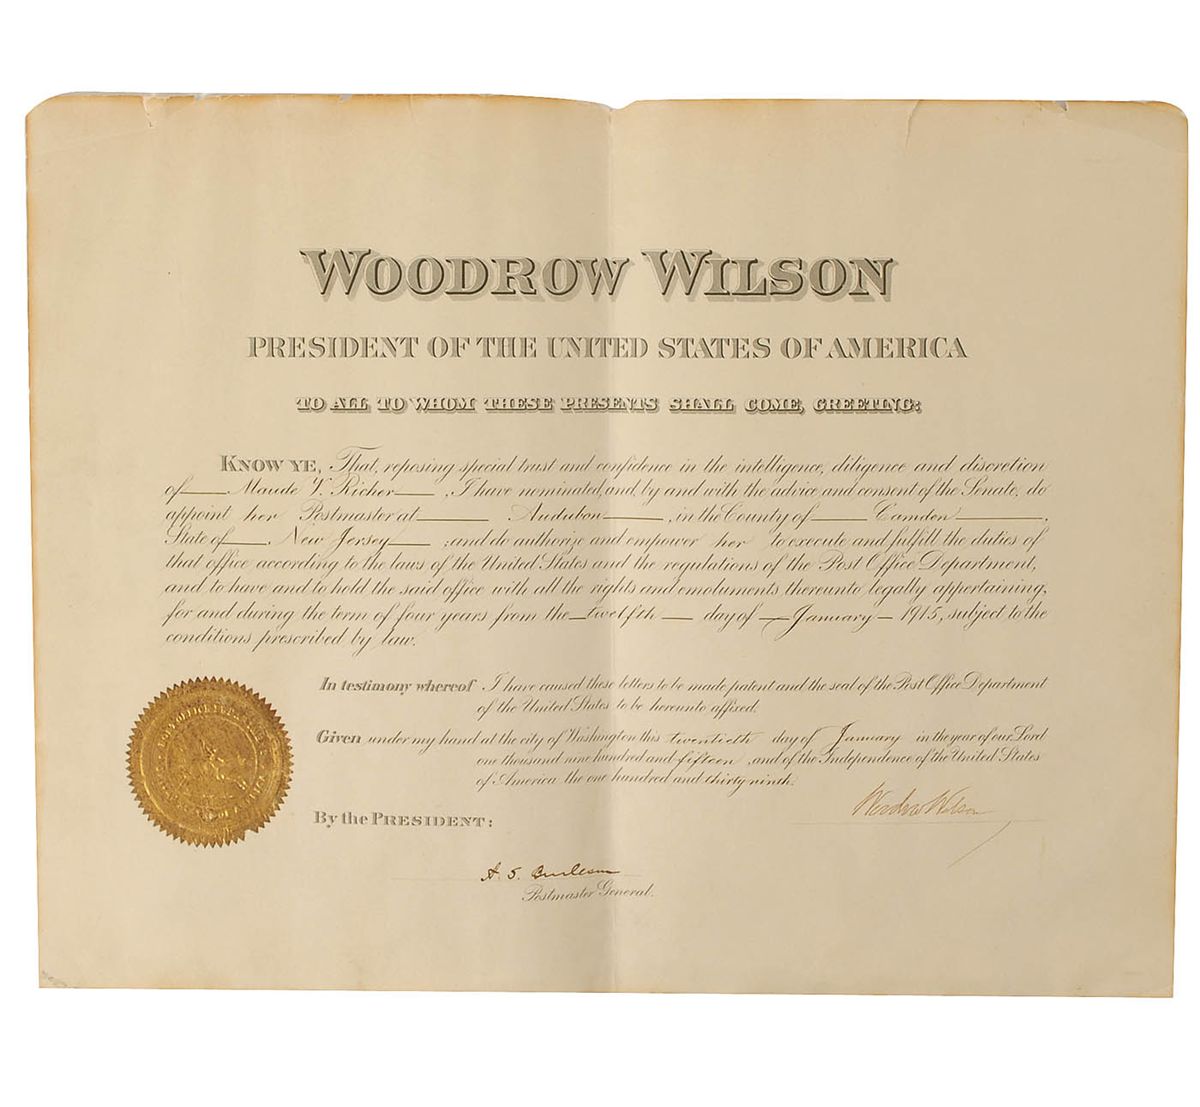 WOODROW WILSON
PRESIDENT OF THE UNITED STATES OF AMERICA
TO ALL TO WHOM THESE PRESENTS SHALL COME, GREETING:
KNOW YE, That, reposing special trust and confidence in the intelligence, diligence and discretion
of Maude V. Richer, I have nominated, and, by and with the advice and consent of the Senate, do
appoint her Postmaster at Audubon, in the County of Camden,
State of New Jersey; and do authorize and empower her to execute and fulfill the duties of
that office according to the laws of the United States and the regulations of the Post Office Department,
and to have and to hold the said office with all the rights and emoluments thereunto legally appertaining,
for and during the term of four years from the twelfth day of January 1915, subject to the
conditions prescribed by law.
In testimony whereof I have caused these letters to be made patent and the seal of the Post Office Department
of the United States to be hereunto affixed.
Given under my hand at the city of Washington this twentieth day of January in the year of our Lord
one thousand nine hundred and fifteen, and of the Independence of the United States
of America the one hundred and thirty-ninth.
Woodrow Wilson
By the PRESIDENT:
A. S. Burleson
Postmaster General.